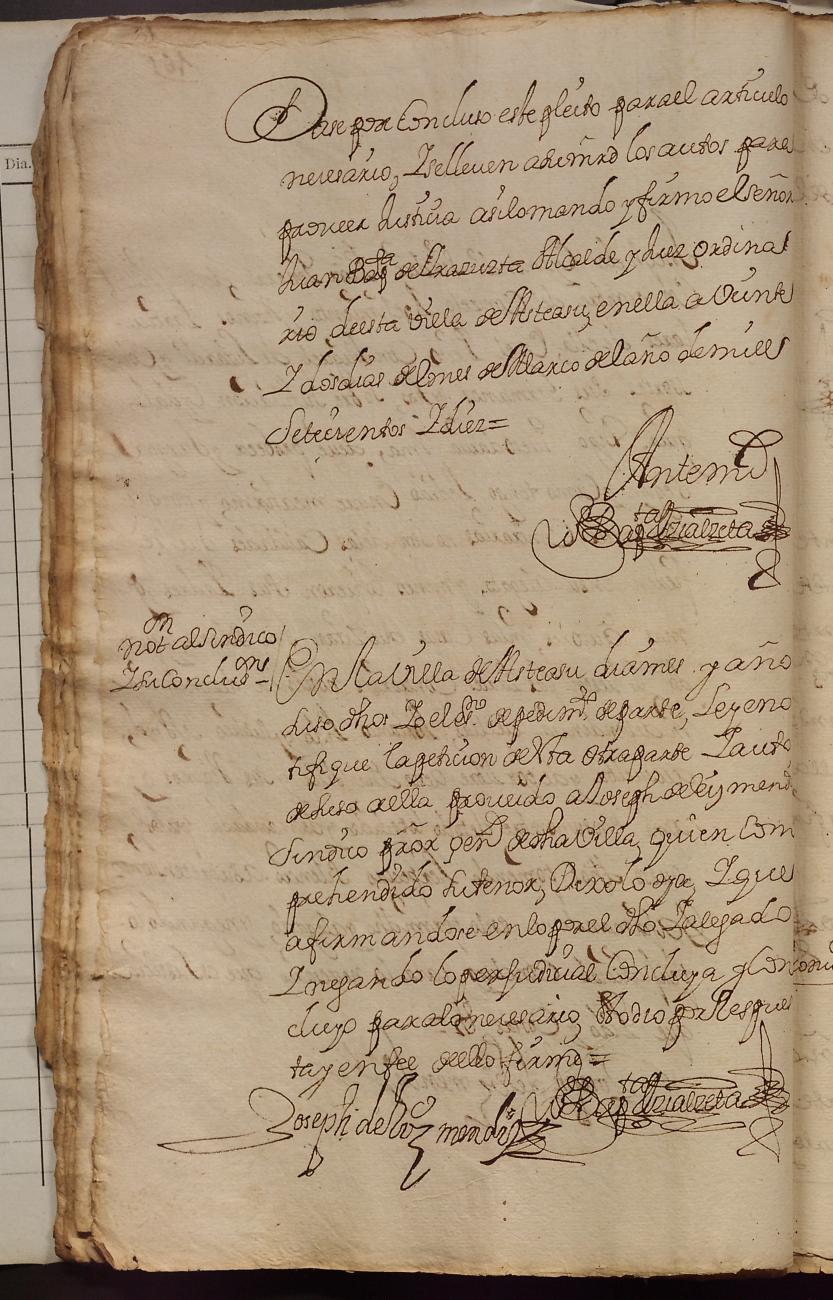 Dase por Concluso este pleito para el articulo
necesario, Y se lleven a su mrd los autos para
proveer Justicia asi lo mando y firmo el señor
Juan Bapta de Alcalde y Juez ordina
rio de esta Villa de Asteasu, en ella a Veinte
Y dos dias del mes de Marco del año de mill
Setecientos Y diez =
Ante mi
Bapta Yrialzeta
Noton al Sindico
Y su Conclusion
En la Villa de Asteasu dia mes y año
suso dhos Yo el Sno de pedimto de parte, Ley e no
tifique la peticion de Vta otra parte Y auto
de suso a ella proveido a Joseph de
Sindico pror genl de dha Villa, quien Com
prehendido su tenor, Dixo lo oya, Y que
afirmandose en lo por el dho Y alegado
Y negando lo perjudicial Concluya y Con
cluyo para lo necesario, Esto dio por Respues
ta y en fee de ello firmo =
Joseph de
Bapta Yrialzeta
Dia.